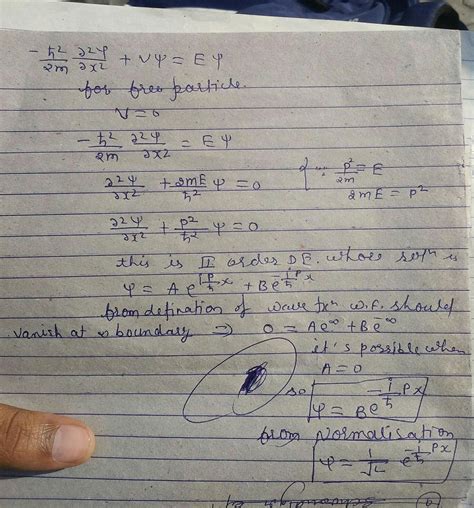 -ħ²/2m ∂²ψ/∂x² + Vψ = Eψ
for free particle.
V=0
-ħ²/2m ∂²ψ/∂x² = Eψ
∂²ψ/∂x² + 2mE/ħ² ψ = 0 { ∵ p²/2m = E
2mE = p²
∂²ψ/∂x² + p²/ħ² ψ = 0
this is II order D.E. whose solⁿ is
ψ = A e^{i p/ħ x} + B e^{-i/ħ px}
from defination of wave fxⁿ w.f. should
vanish at ∞ boundary ⇒ 0 = Ae^∞ + Be^{-∞}
it's possible when
A = 0
so ψ = B e^{-i/ħ px}
from Normalisation
ψ = 1/√L e^{-i/ħ px}